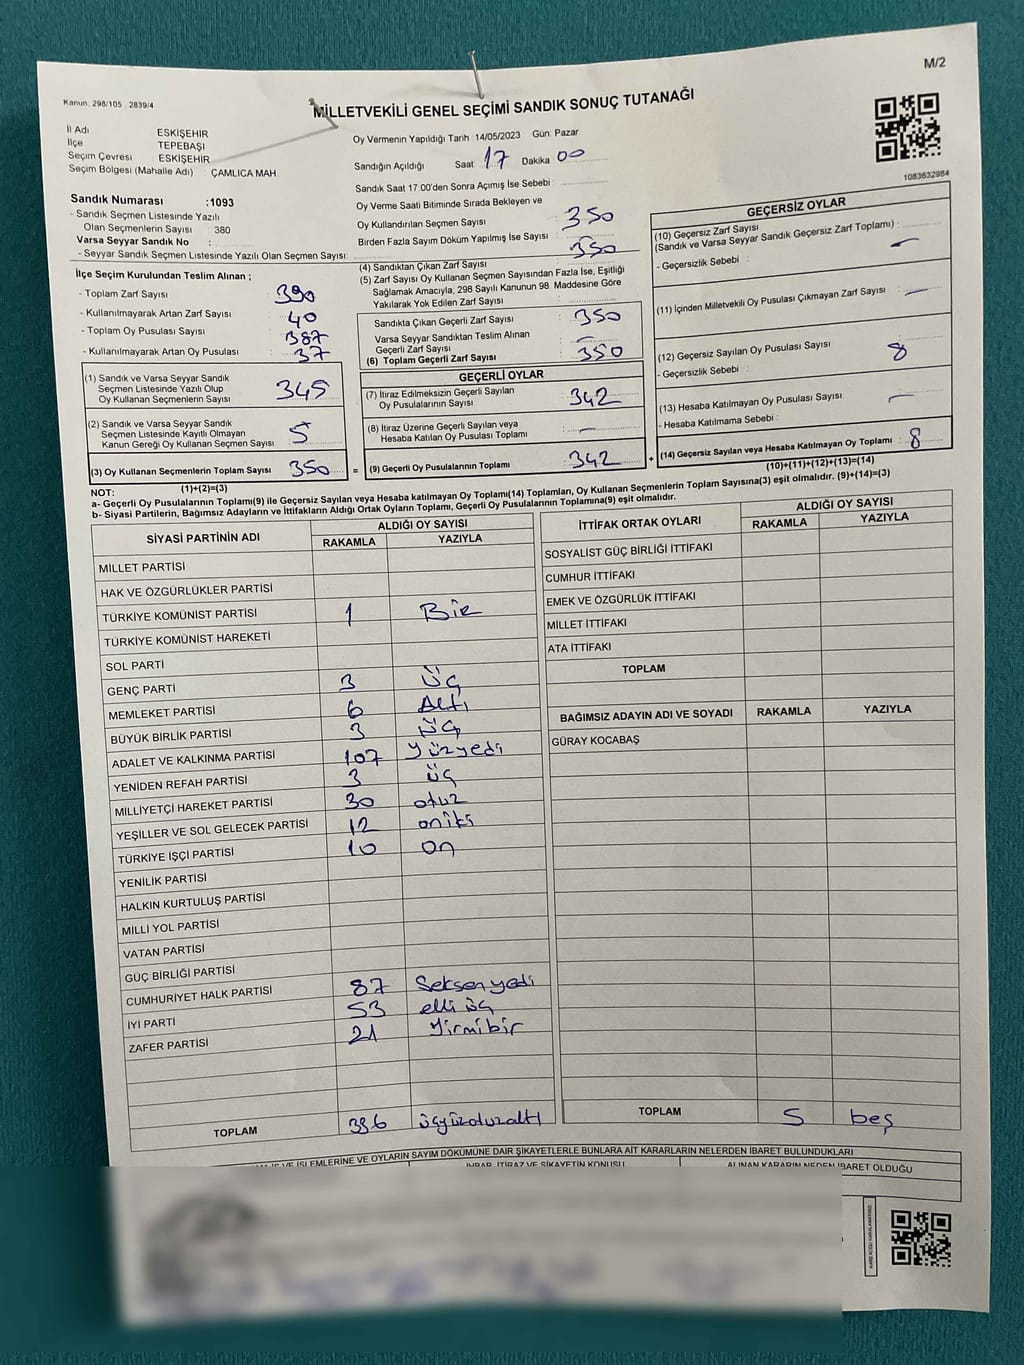 M/2
Kanun, 298/105 , 2839/4
MİLLETVEKİLİ GENEL SEÇİMİ SANDIK SONUÇ TUTANAĞI
İl Adı ESKİŞEHİR
İlçe TEPEBAŞI
Seçim Çevresi ESKİŞEHİR
Seçim Bölgesi (Mahalle Adı) : ÇAMLICA MAH
Sandık Numarası :1093
- Sandık Seçmen Listesinde Yazılı
Olan Seçmenlerin Sayısı : 380
Varsa Seyyar Sandık No :
- Seyyar Sandık Seçmen Listesinde Yazılı Olan Seçmen Sayısı:
İlçe Seçim Kurulundan Teslim Alınan ;
- Toplam Zarf Sayısı : 390
- Kullanılmayarak Artan Zarf Sayısı : 40
- Toplam Oy Pusulası Sayısı : 387
- Kullanılmayarak Artan Oy Pusulası : 37
(1) Sandık ve Varsa Seyyar Sandık
Seçmen Listesinde Yazılı Olup
Oy Kullanan Seçmenlerin Sayısı 345
(2) Sandık ve Varsa Seyyar Sandık
Seçmen Listesinde Kayıtlı Olmayan
Kanun Gereği Oy Kullanan Seçmen Sayısı 5
(3) Oy Kullanan Seçmenlerin Toplam Sayısı 350
(1)+(2)=(3)
Oy Vermenin Yapıldığı Tarih : 14/05/2023 Gün: Pazar
Sandığın Açıldığı Saat: 17 Dakika 00
Sandık Saat 17.00'den Sonra Açımış İse Sebebi :
Oy Verme Saati Bitiminde Sırada Bekleyen ve
Oy Kullandırılan Seçmen Sayısı : 350
Birden Fazla Sayım Döküm Yapılmış İse Sayısı :
(4) Sandıktan Çıkan Zarf Sayısı : 350
(5) Zarf Sayısı Oy Kullanan Seçmen Sayısından Fazla İse, Eşitliği
Sağlamak Amacıyla, 298 Sayılı Kanunun 98. Maddesine Göre
Yakılarak Yok Edilen Zarf Sayısı :
Sandıkta Çıkan Geçerli Zarf Sayısı : 350
Varsa Seyyar Sandıktan Teslim Alınan
Geçerli Zarf Sayısı : —
(6) Toplam Geçerli Zarf Sayısı : 350
GEÇERLİ OYLAR
(7) İtiraz Edilmeksizin Geçerli Sayılan
Oy Pusulalarının Sayısı : 342
(8) İtiraz Üzerine Geçerli Sayılan veya
Hesaba Katılan Oy Pusulası Toplamı : —
= (9) Geçerli Oy Pusulalarının Toplamı : 342
1083632984
GEÇERSİZ OYLAR
(10) Geçersiz Zarf Sayısı
(Sandık ve Varsa Seyyar Sandık Geçersiz Zarf Toplamı) : —
- Geçersizlik Sebebi :
(11) İçinden Milletvekili Oy Pusulası Çıkmayan Zarf Sayısı : —
(12) Geçersiz Sayılan Oy Pusulası Sayısı : 8
- Geçersizlik Sebebi :
(13) Hesaba Katılmayan Oy Pusulası Sayısı : —
- Hesaba Katılmama Sebebi :
+ (14) Geçersiz Sayılan veya Hesaba Katılmayan Oy Toplamı : 8
(10)+(11)+(12)+(13)=(14)
NOT:
a- Geçerli Oy Pusulalarının Toplamı(9) ile Geçersiz Sayılan veya Hesaba katılmayan Oy Toplamı(14) Toplamları, Oy Kullanan Seçmenlerin Toplam Sayısına(3) eşit olmalıdır. (9)+(14)=(3)
b- Siyasi Partilerin, Bağımsız Adayların ve İttifakların Aldığı Ortak Oyların Toplamı, Geçerli Oy Pusulalarının Toplamına(9) eşit olmalıdır.
SİYASİ PARTİNİN ADI ALDIĞI OY SAYISI
RAKAMLA YAZIYLA
MİLLET PARTİSİ
HAK VE ÖZGÜRLÜKLER PARTİSİ
TÜRKİYE KOMÜNİST PARTİSİ 1 Bir
TÜRKİYE KOMÜNİST HAREKETİ
SOL PARTİ
GENÇ PARTİ 3 üç
MEMLEKET PARTİSİ 6 Altı
BÜYÜK BİRLİK PARTİSİ 3 üç
ADALET VE KALKINMA PARTİSİ 107 Yüzyedi
YENİDEN REFAH PARTİSİ 3 üç
MİLLİYETÇİ HAREKET PARTİSİ 30 otuz
YEŞİLLER VE SOL GELECEK PARTİSİ 12 oniki
TÜRKİYE İŞÇİ PARTİSİ 10 on
YENİLİK PARTİSİ
HALKIN KURTULUŞ PARTİSİ
MİLLİ YOL PARTİSİ
VATAN PARTİSİ
GÜÇ BİRLİĞİ PARTİSİ
CUMHURİYET HALK PARTİSİ 87 Seksenyedi
İYİ PARTİ 53 elli üç
ZAFER PARTİSİ 21 Yirmibir
TOPLAM 336 üçyüzotuzaltı
İTTİFAK ORTAK OYLARI ALDIĞI OY SAYISI
RAKAMLA YAZIYLA
SOSYALİST GÜÇ BİRLİĞİ İTTİFAKI
CUMHUR İTTİFAKI
EMEK VE ÖZGÜRLÜK İTTİFAKI
MİLLET İTTİFAKI
ATA İTTİFAKI
TOPLAM
BAĞIMSIZ ADAYIN ADI VE SOYADI RAKAMLA YAZIYLA
GÜRAY KOCABAŞ
TOPLAM 5 beş
VE İŞLEMLERİNE VE OYLARIN SAYIM DÖKÜMÜNE DAİR ŞİKAYETLERLE BUNLARA AİT KARARLARIN NELERDEN İBARET BULUNDUKLARI
İHBAR, İTİRAZ VE ŞİKAYETİN KONUSU ALINAN KARARIN NEDEN İBARET OLDUĞU